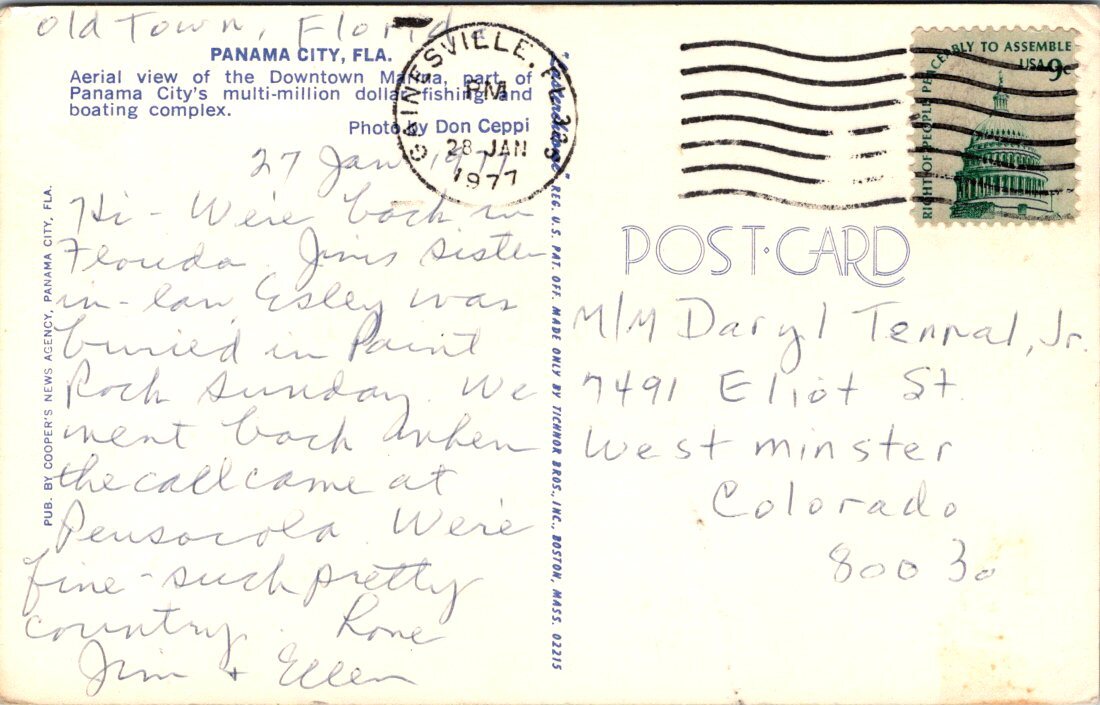 Old Town, Florida
PANAMA CITY, FLA.
Aerial view of the Downtown Marina, part of
Panama City's multi-million dollar fishing and
boating complex.
Photo by Don Ceppi
27 Jan 1977
Hi - We're back in
Florida. Jim's sister
in-law Esley was
buried in Paint
Rock Sunday. We
went back when
the call came at
Pensacola. We're
fine - such pretty
country. Love
Jim + Ellen
PUB. BY COOPER'S NEWS AGENCY, PANAMA CITY, FLA.
REG. U.S. PAT. OFF. MADE ONLY BY TICHNOR BROS., INC., BOSTON, MASS. 02215
GAINESVILLE, FL
PM
28 JAN
1977
RIGHT OF PEOPLE PEACEABLY TO ASSEMBLE
USA 9c
POST CARD
M/M Daryl Tennal, Jr.
7491 Eliot St.
Westminster
Colorado
80030